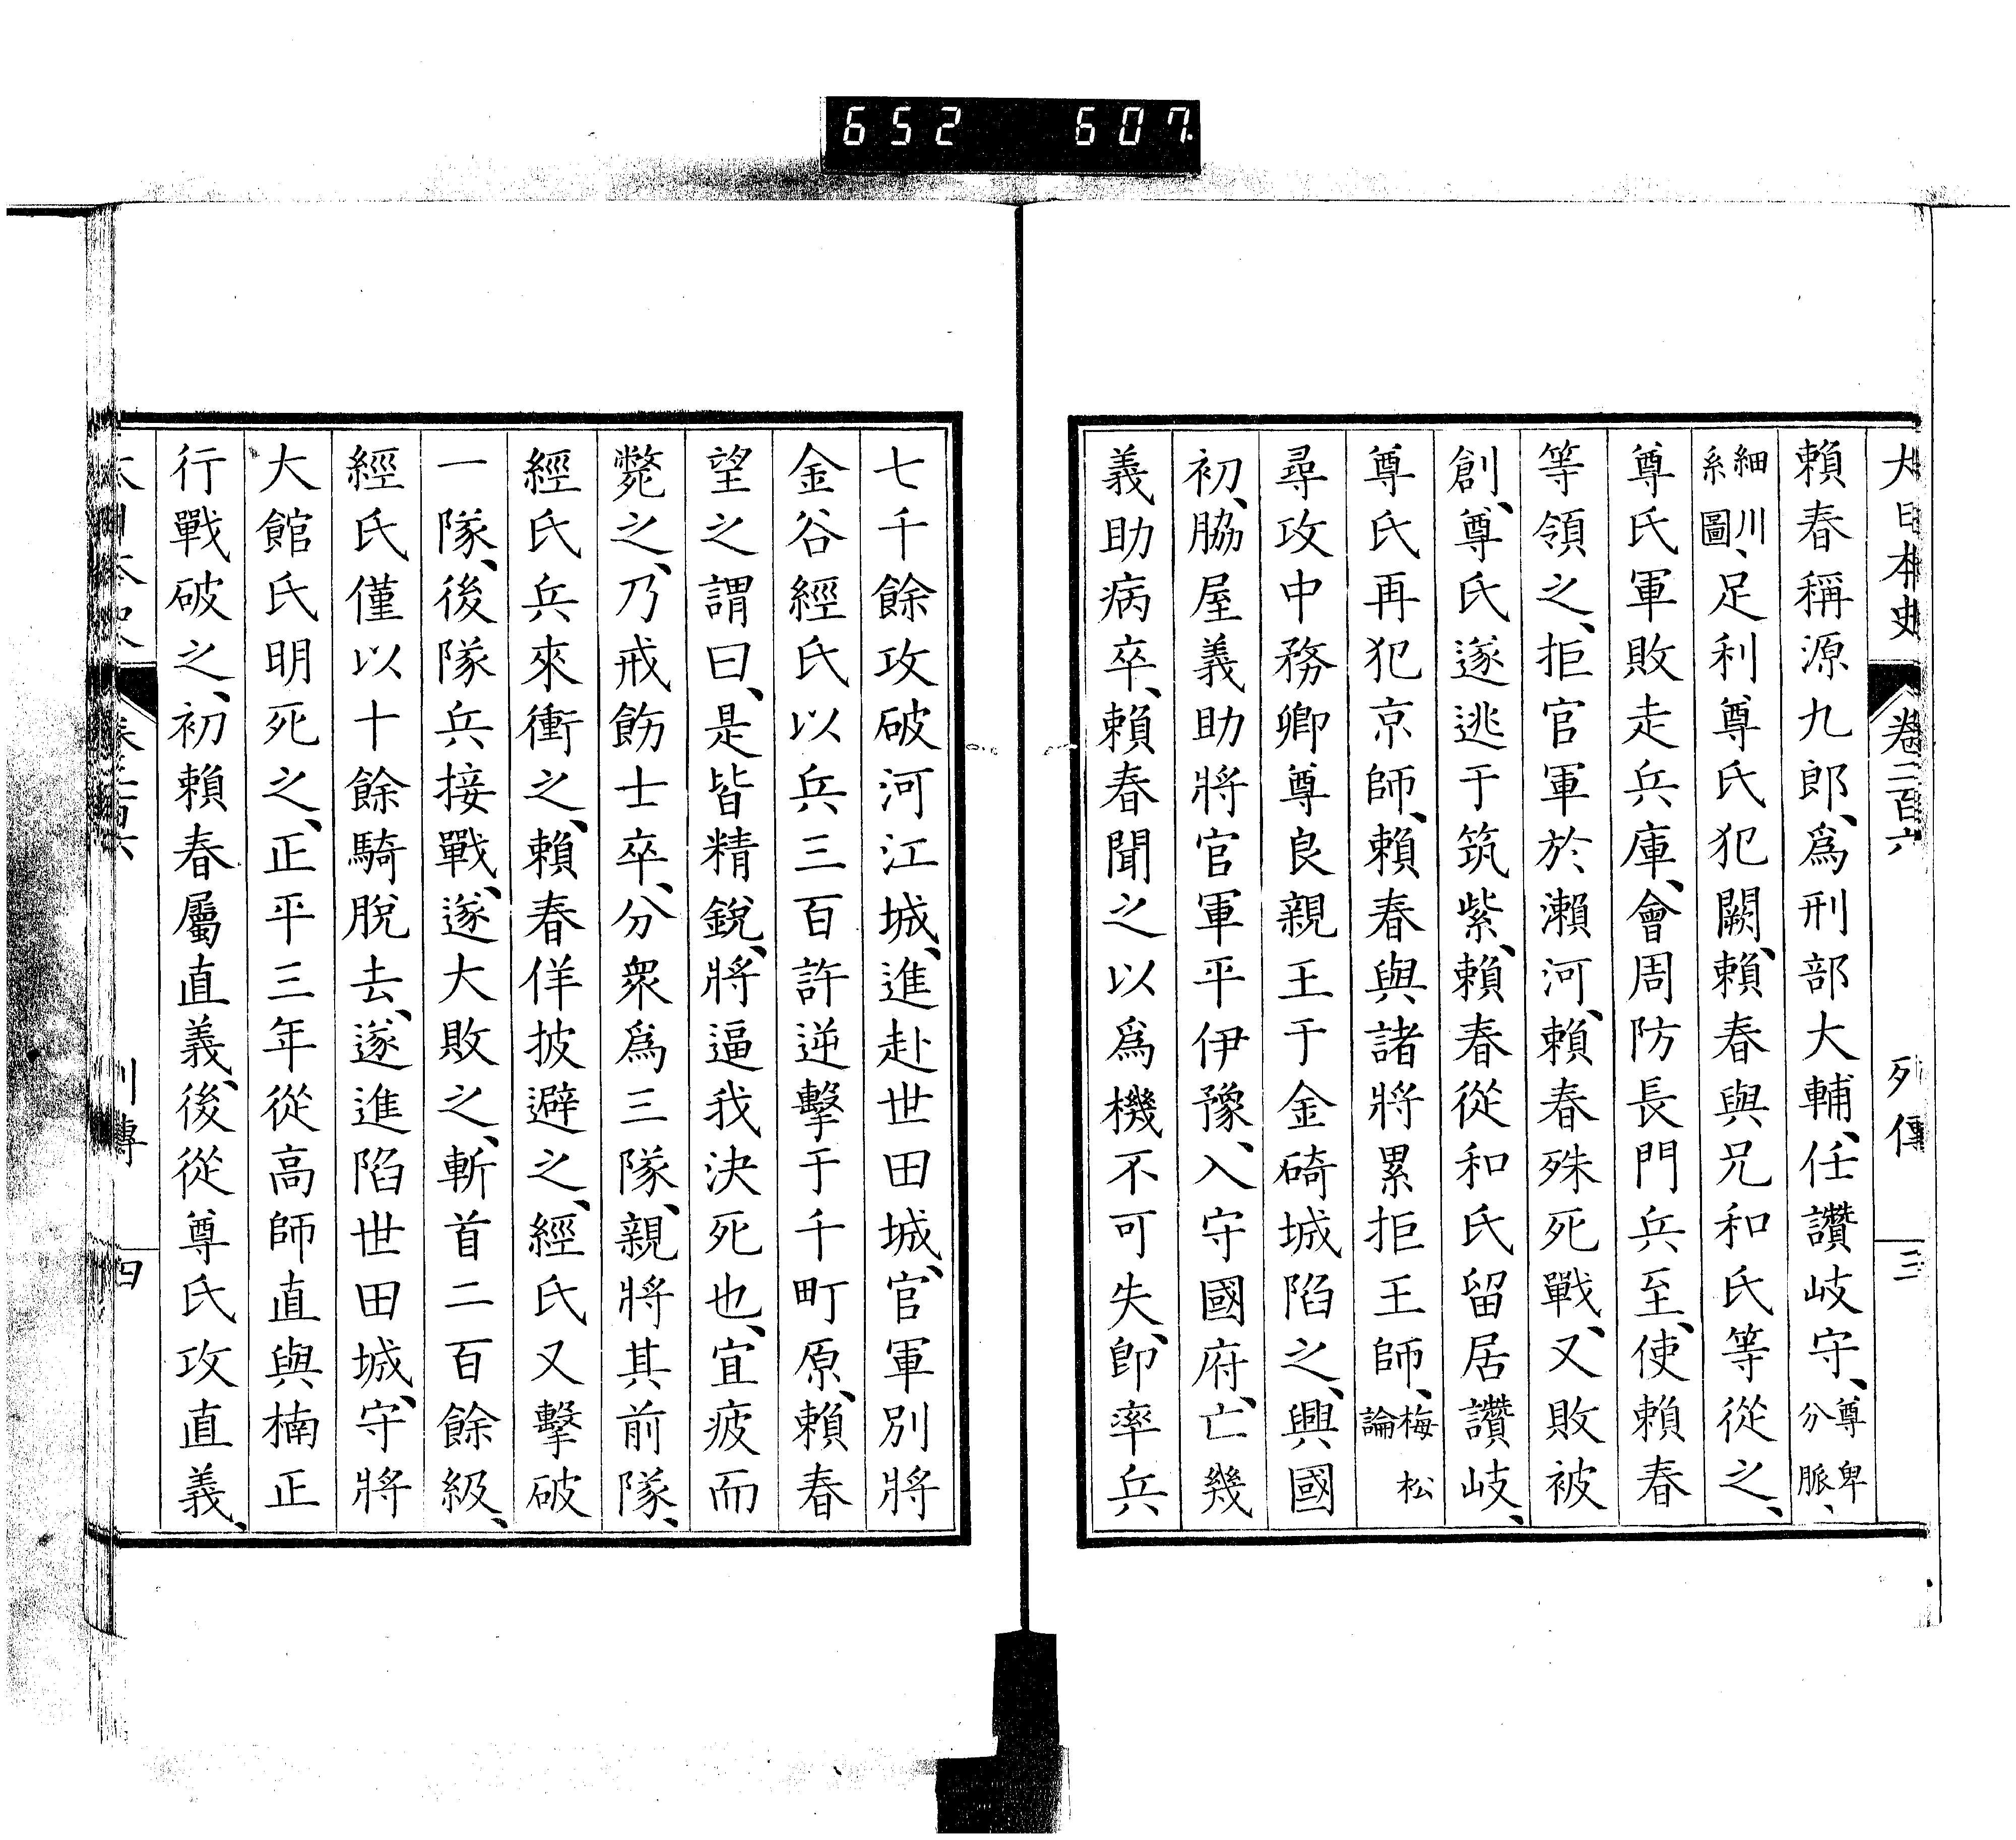 652 607
大日本史 卷二百六 列傳 三
賴春稱源九郎、爲刑部大輔、任讚岐守、尊卑分脈、
細川系圖、足利尊氏犯闕、賴春與兄和氏等從之、
尊氏軍敗走兵庫、會周防長門兵至、使賴春
等領之、拒官軍於瀨河、賴春殊死戰、又敗被
創、尊氏遂逃于筑紫、賴春從和氏留居讚岐、
尊氏再犯京師、賴春與諸將累拒王師、梅松論
尋攻中務卿尊良親王于金碕城陷之、興國
初、脇屋義助將官軍平伊豫、入守國府、亡幾
義助病卒、賴春聞之以爲機不可失、卽率兵
七千餘攻破河江城、進赴世田城、官軍別將
金谷經氏以兵三百許逆擊于千町原、賴春
望之謂曰、是皆精銳、將逼我決死也、宜疲而
斃之、乃戒飭士卒、分衆爲三隊、親將其前隊、
經氏兵來衝之、賴春佯披避之、經氏又擊破
一隊、後隊兵接戰、遂大敗之、斬首二百餘級、
經氏僅以十餘騎脫去、遂進陷世田城、守將
大館氏明死之、正平三年從高師直與楠正
行戰破之、初賴春屬直義、後從尊氏攻直義、